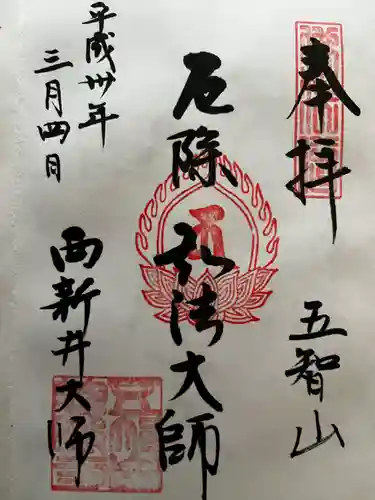 奉拝
五智山
厄除弘法大師
平成卅年
三月四日
西新井大師